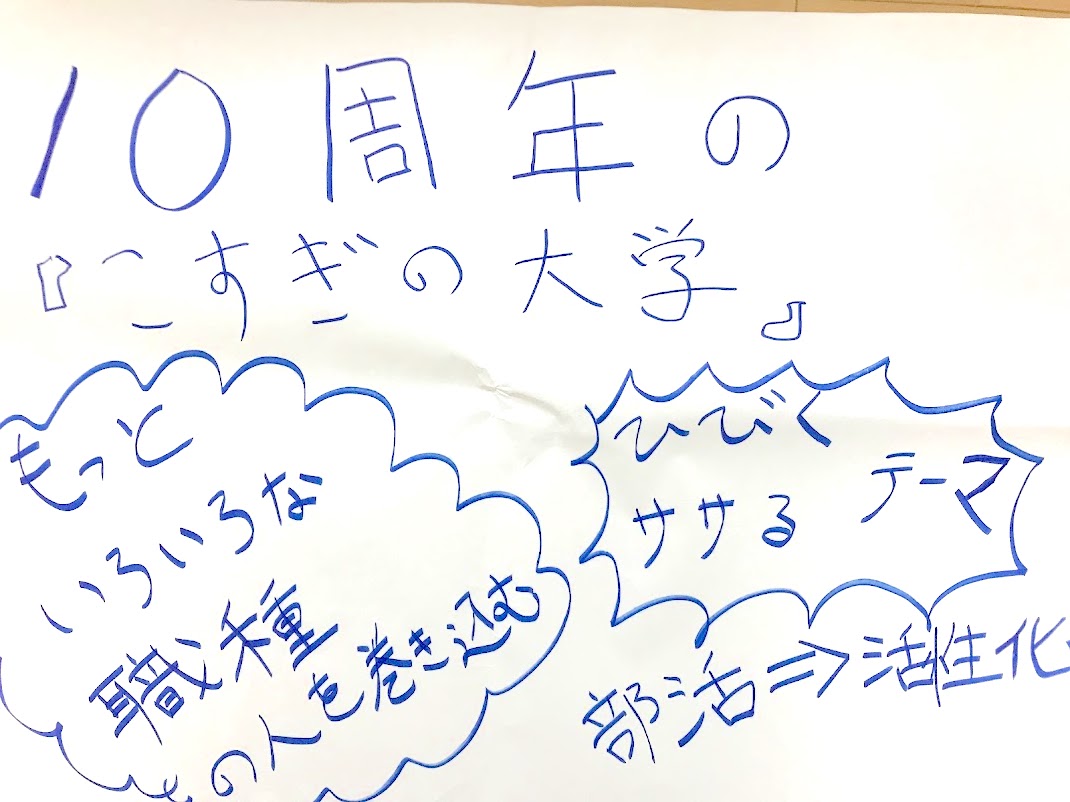 10周年の
『こすぎの大学』
もっと
いろいろな
職種
の人を巻き込む
ひびく
ササる
テーマ
部活⇒活性化